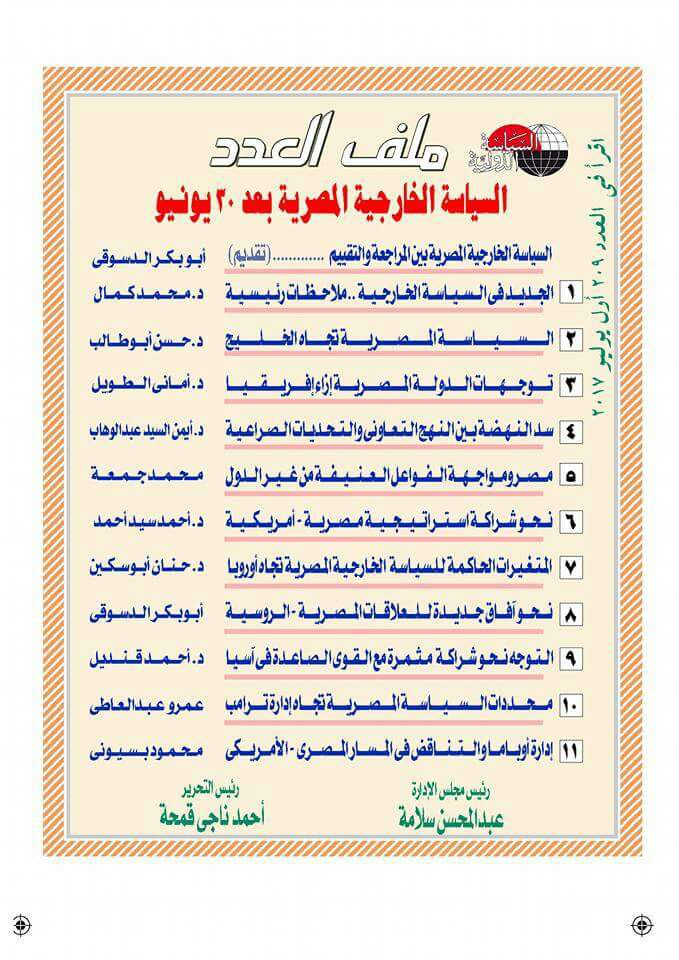 السياسة الدولية
ملف العدد
السياسة الخارجية المصرية بعد ٣٠ يونيو
اقرأ في العدد ٢٠٩ أول يوليو ٢٠١٧
السياسة الخارجية المصرية بين المراجعة والتقييم ............ (تقديم) أبو بكر الدسوقى
١ الجديد فى السياسة الخارجية .. ملاحظات رئيسية د. محمد كمال
٢ السياسة المصرية تجاه الخليج د. حسن أبو طالب
٣ توجهات الدولة المصرية إزاء إفريقيا د. أمانى الطويل
٤ سد النهضة بين النهج التعاونى والتحديات الصراعية د. أيمن السيد عبد الوهاب
٥ مصر ومواجهة الفواعل العنيفة من غير الدول محمد جمعة
٦ نحو شراكة استراتيجية مصرية - أمريكية د. أحمد سيد أحمد
٧ المتغيرات الحاكمة للسياسة الخارجية المصرية تجاه أوروبا د. حنان أبو سكين
٨ نحو آفاق جديدة للعلاقات المصرية - الروسية أبو بكر الدسوقى
٩ التوجه نحو شراكة مثمرة مع القوى الصاعدة فى آسيا د. أحمد قنديل
١٠ محددات السياسة المصرية تجاه إدارة ترامب عمرو عبد العاطى
١١ إدارة أوباما والتناقض فى المسار المصرى - الأمريكى محمود بسيونى
رئيس مجلس الإدارة
عبد المحسن سلامة
رئيس التحرير
أحمد ناجى قمحة